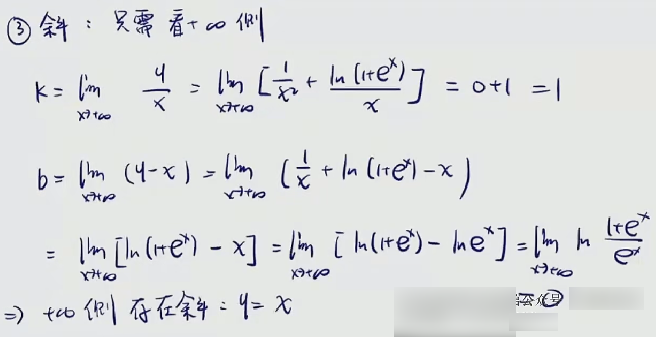 ③ 斜：只需看+∞侧
k = lim_{x→+∞} y/x = lim_{x→+∞} [1/x² + ln(1+e^x)/x] = 0+1 = 1
b = lim_{x→+∞} (y-x) = lim_{x→+∞} (1/x + ln(1+e^x) - x)
= lim_{x→+∞} [ln(1+e^x) - x] = lim_{x→+∞} [ln(1+e^x) - ln e^x] = lim_{x→+∞} ln (1+e^x)/e^x
⇒ +∞侧存在斜：y = x
= 0